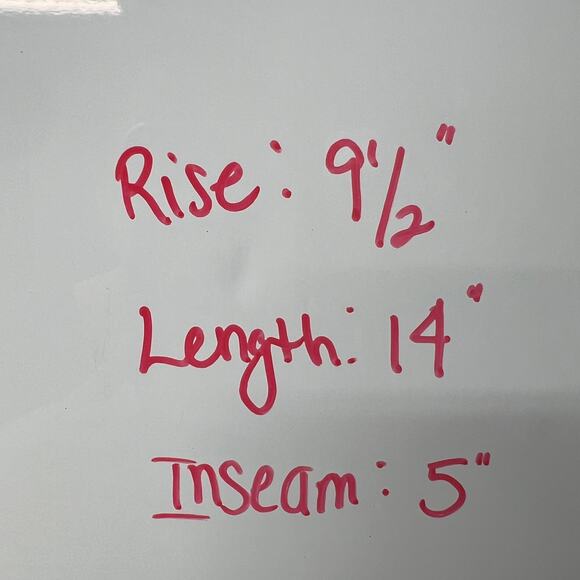 Rise: 9 1/2"
Length: 14"
Inseam: 5"